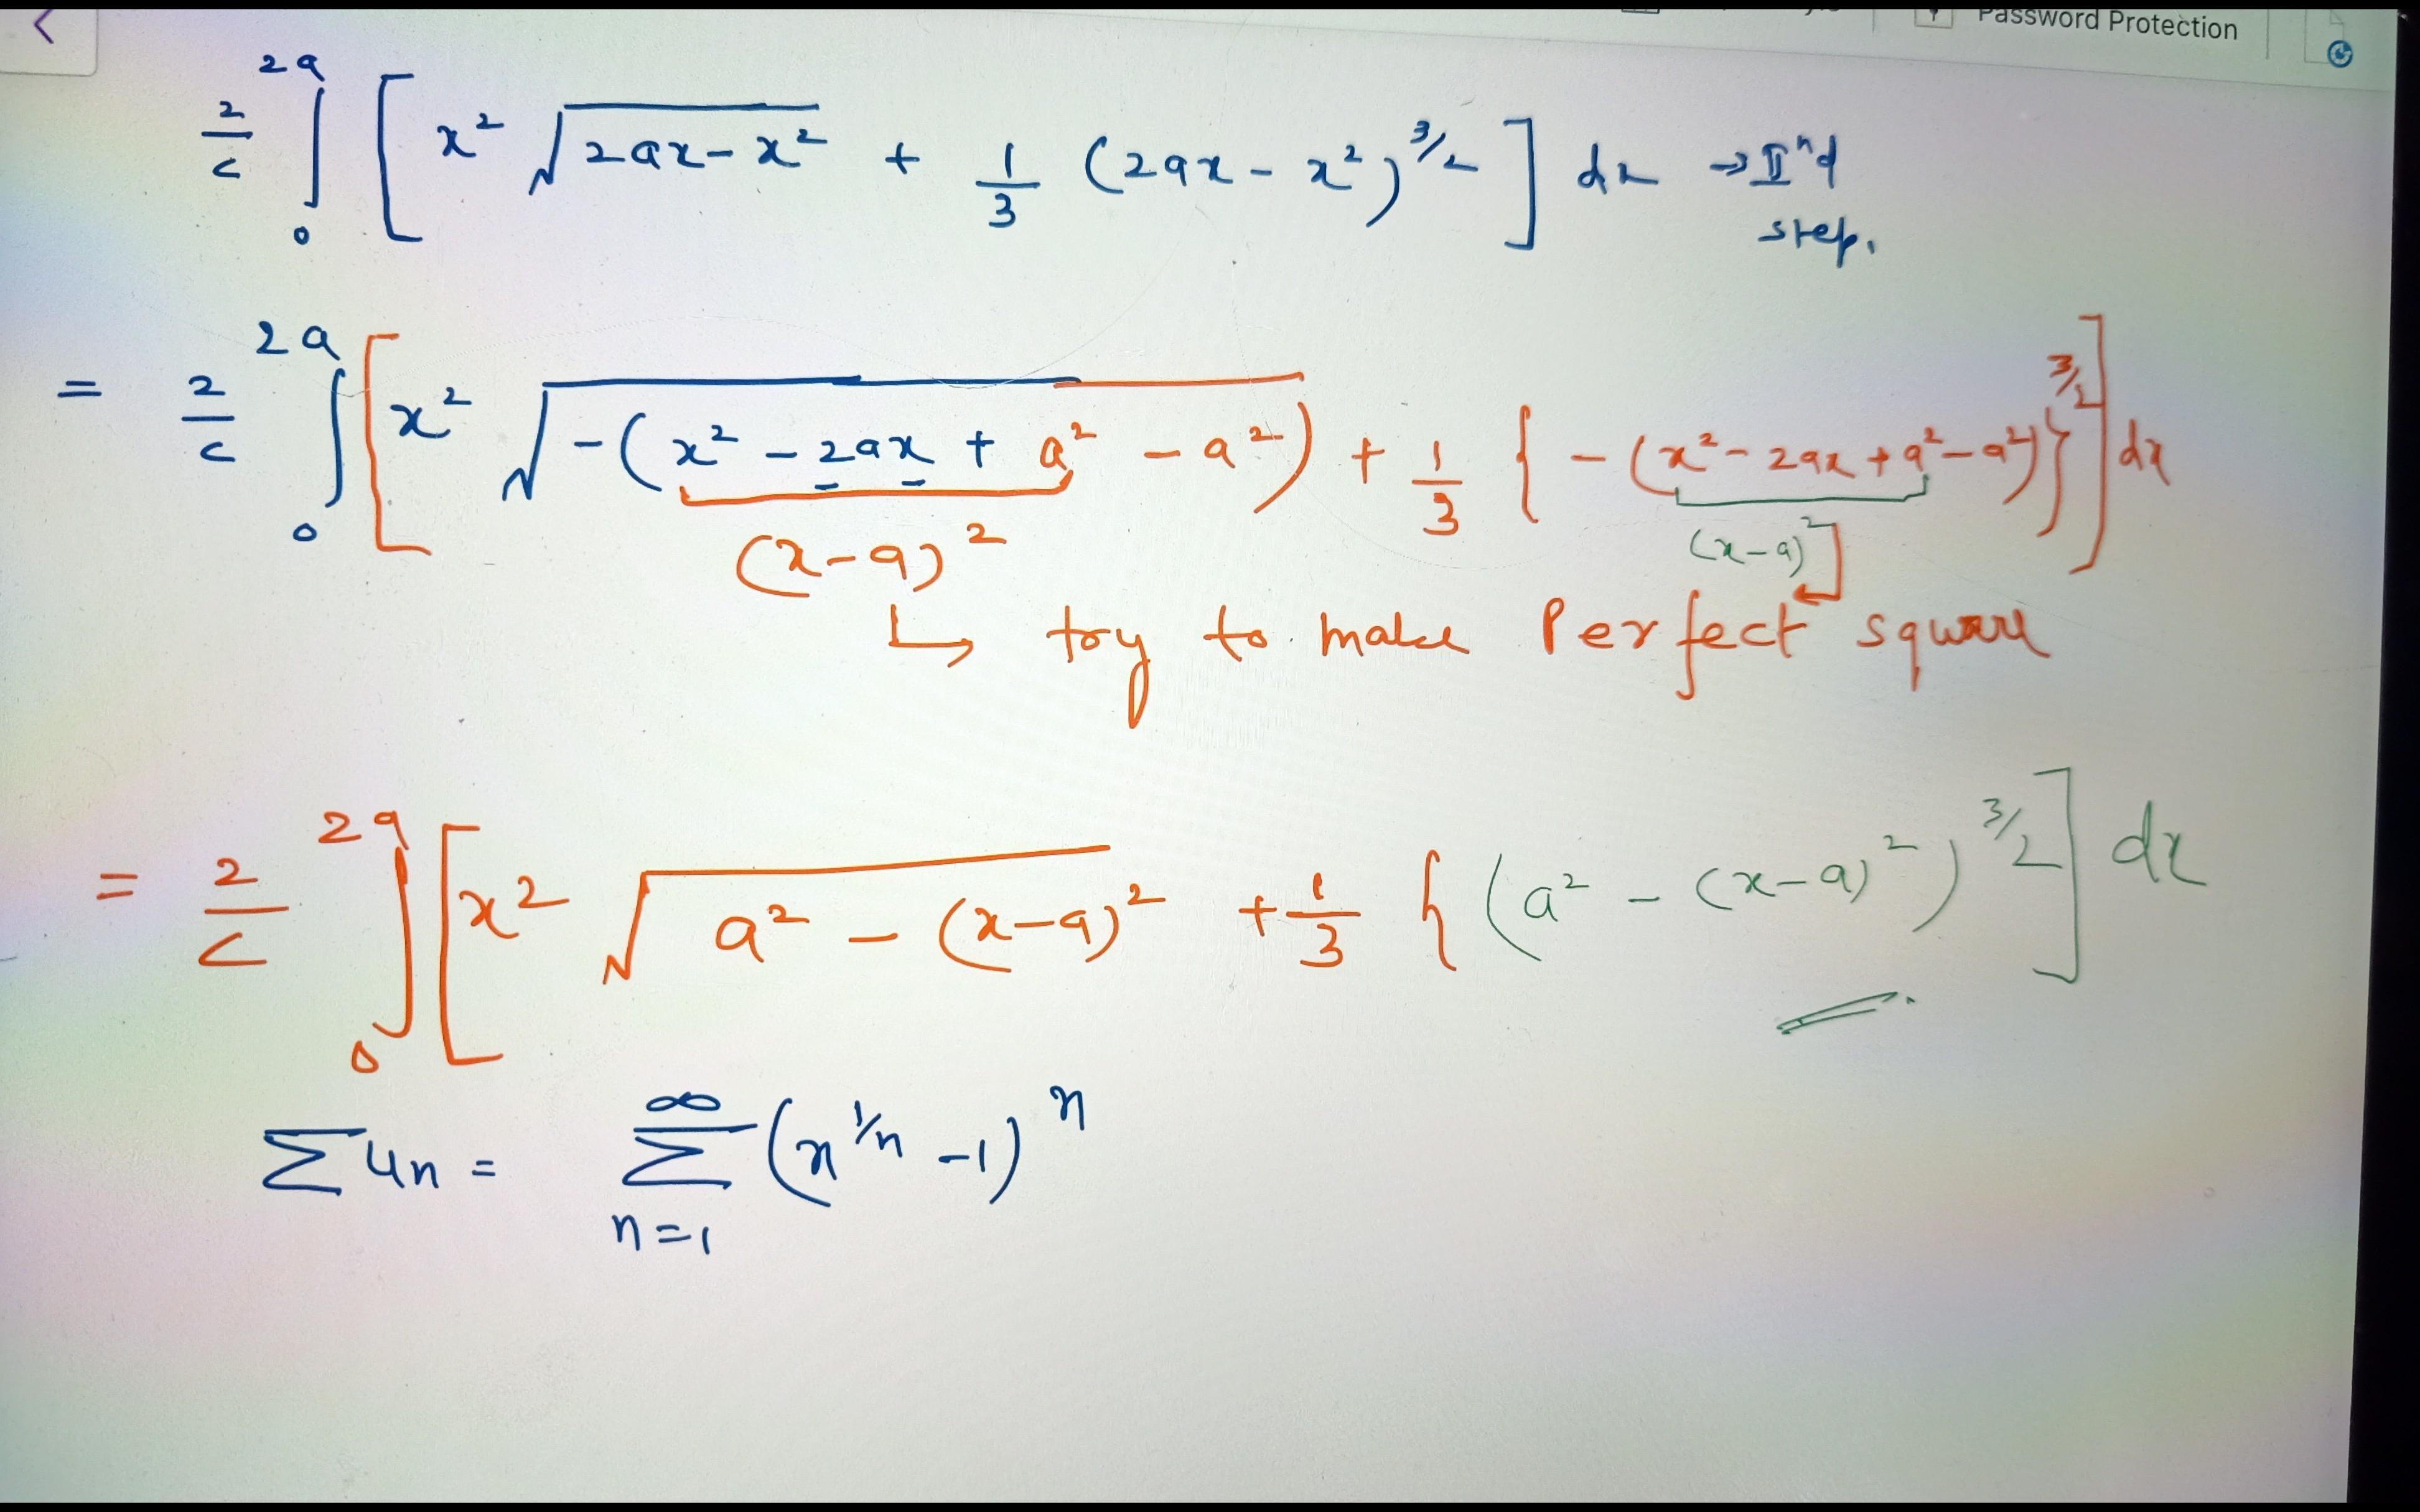 Password Protection
2/c ∫₀^{2a} [ x² √(2ax - x²) + 1/3 (2ax - x²)^{3/2} ] dx → IInd
step.
= 2/c ∫₀^{2a} [ x² √(-(x² - 2ax + a² - a²)) + 1/3 { -(x² - 2ax + a² - a²) }^{3/2} ] dx
(x-a)² (x-a)²
↳ try to make Perfect square
= 2/c ∫₀^{2a} [ x² √(a² - (x-a)²) + 1/3 { (a² - (x-a)²)^{3/2} ] dx
∑un = ∑_{n=1}^{∞} (n^{1/n} - 1)^n